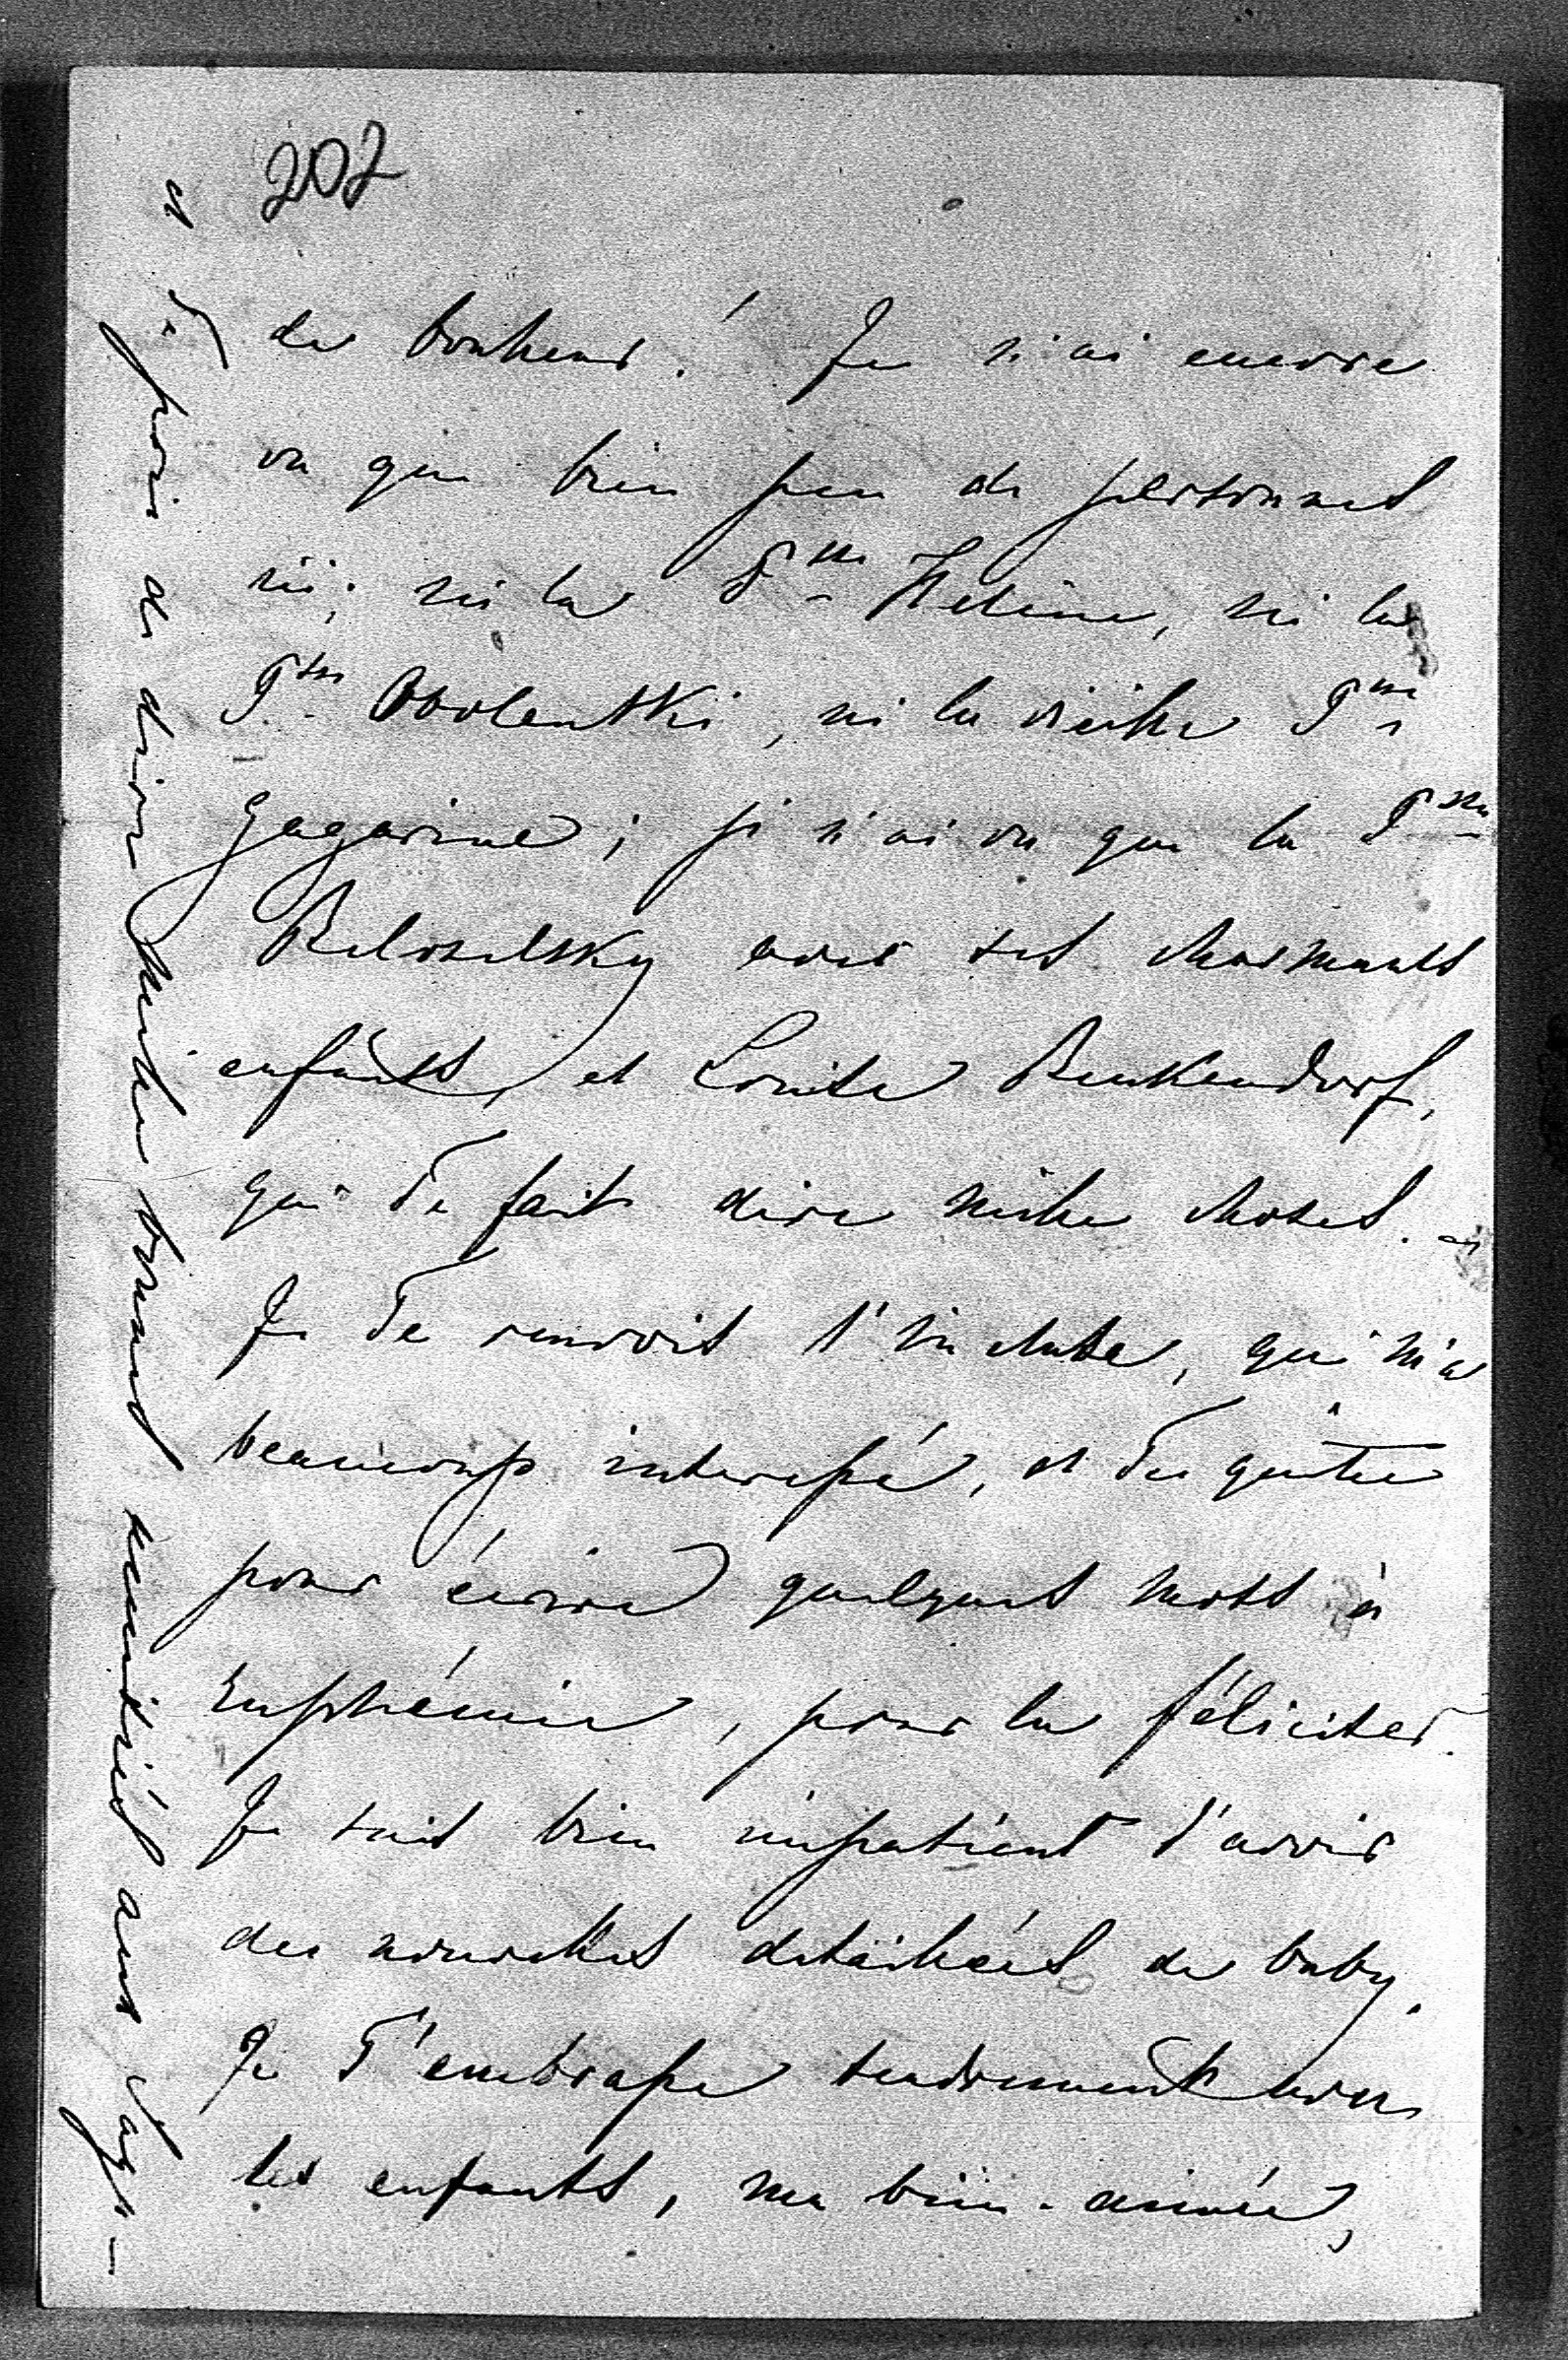 202
de bonheur! Je n'ai encore
vu que bien peu de personnes
ici; ni la Psse Hélène, ni la
Psse Obolenski, ni la vieille Psse
Gagarine; je n'ai vu que la Psse
Beloselsky avec ses charmants
enfants, et Comte Benkendorf,
qui Te fait dire mille choses. —
Je Te renvois l'incluse, qui m'a
beaucoup interessé, et Te quitte
pour écrire quelques mots à
Euphémie, pour la féliciter.
Je suis bien impatient d'avoir
des nouvelles detaillées de baby.
Je T'embrasse tendrement avec
les enfants, ma bien-aimée,
et Te prie de dire mille bonnes amitiés aux